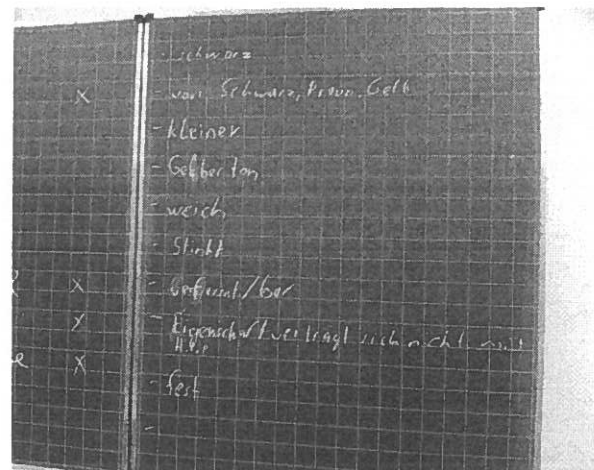 - schwarz
x - von Schwarz, Braun, Gelb
- kleiner
- Gelber Ton
- weich
- Stinkt
x
x - Eigenschaft verträgt sich nicht mit
e x
- fest
-